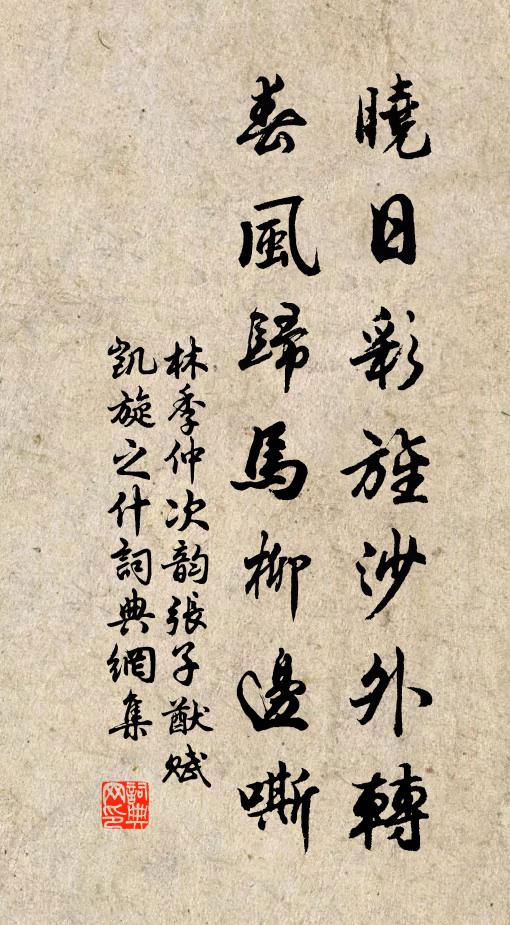 曉日彩旌沙外轉
春風歸馬柳邊嘶
林季仲次韵張子猷賦
凱旋之什詞典網集
詞典网印